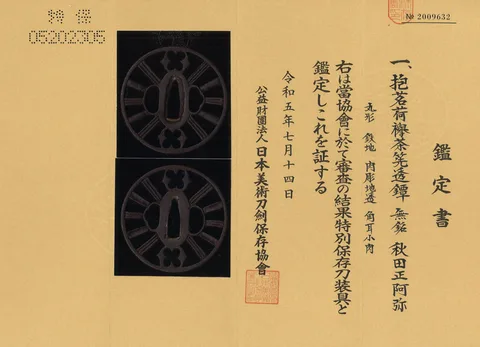 鑑定書
一、抱茗荷欅茶筅透鐔 無銘 秋田正阿弥
丸形 鉄地 肉彫地透 角耳小肉
右は當協會に於て審査の結果特別保存刀装具と
鑑定しこれを証する
令和五年七月十四日
公益財團法人日本美術刀劍保存協會
№ 2009632
特保
05202305